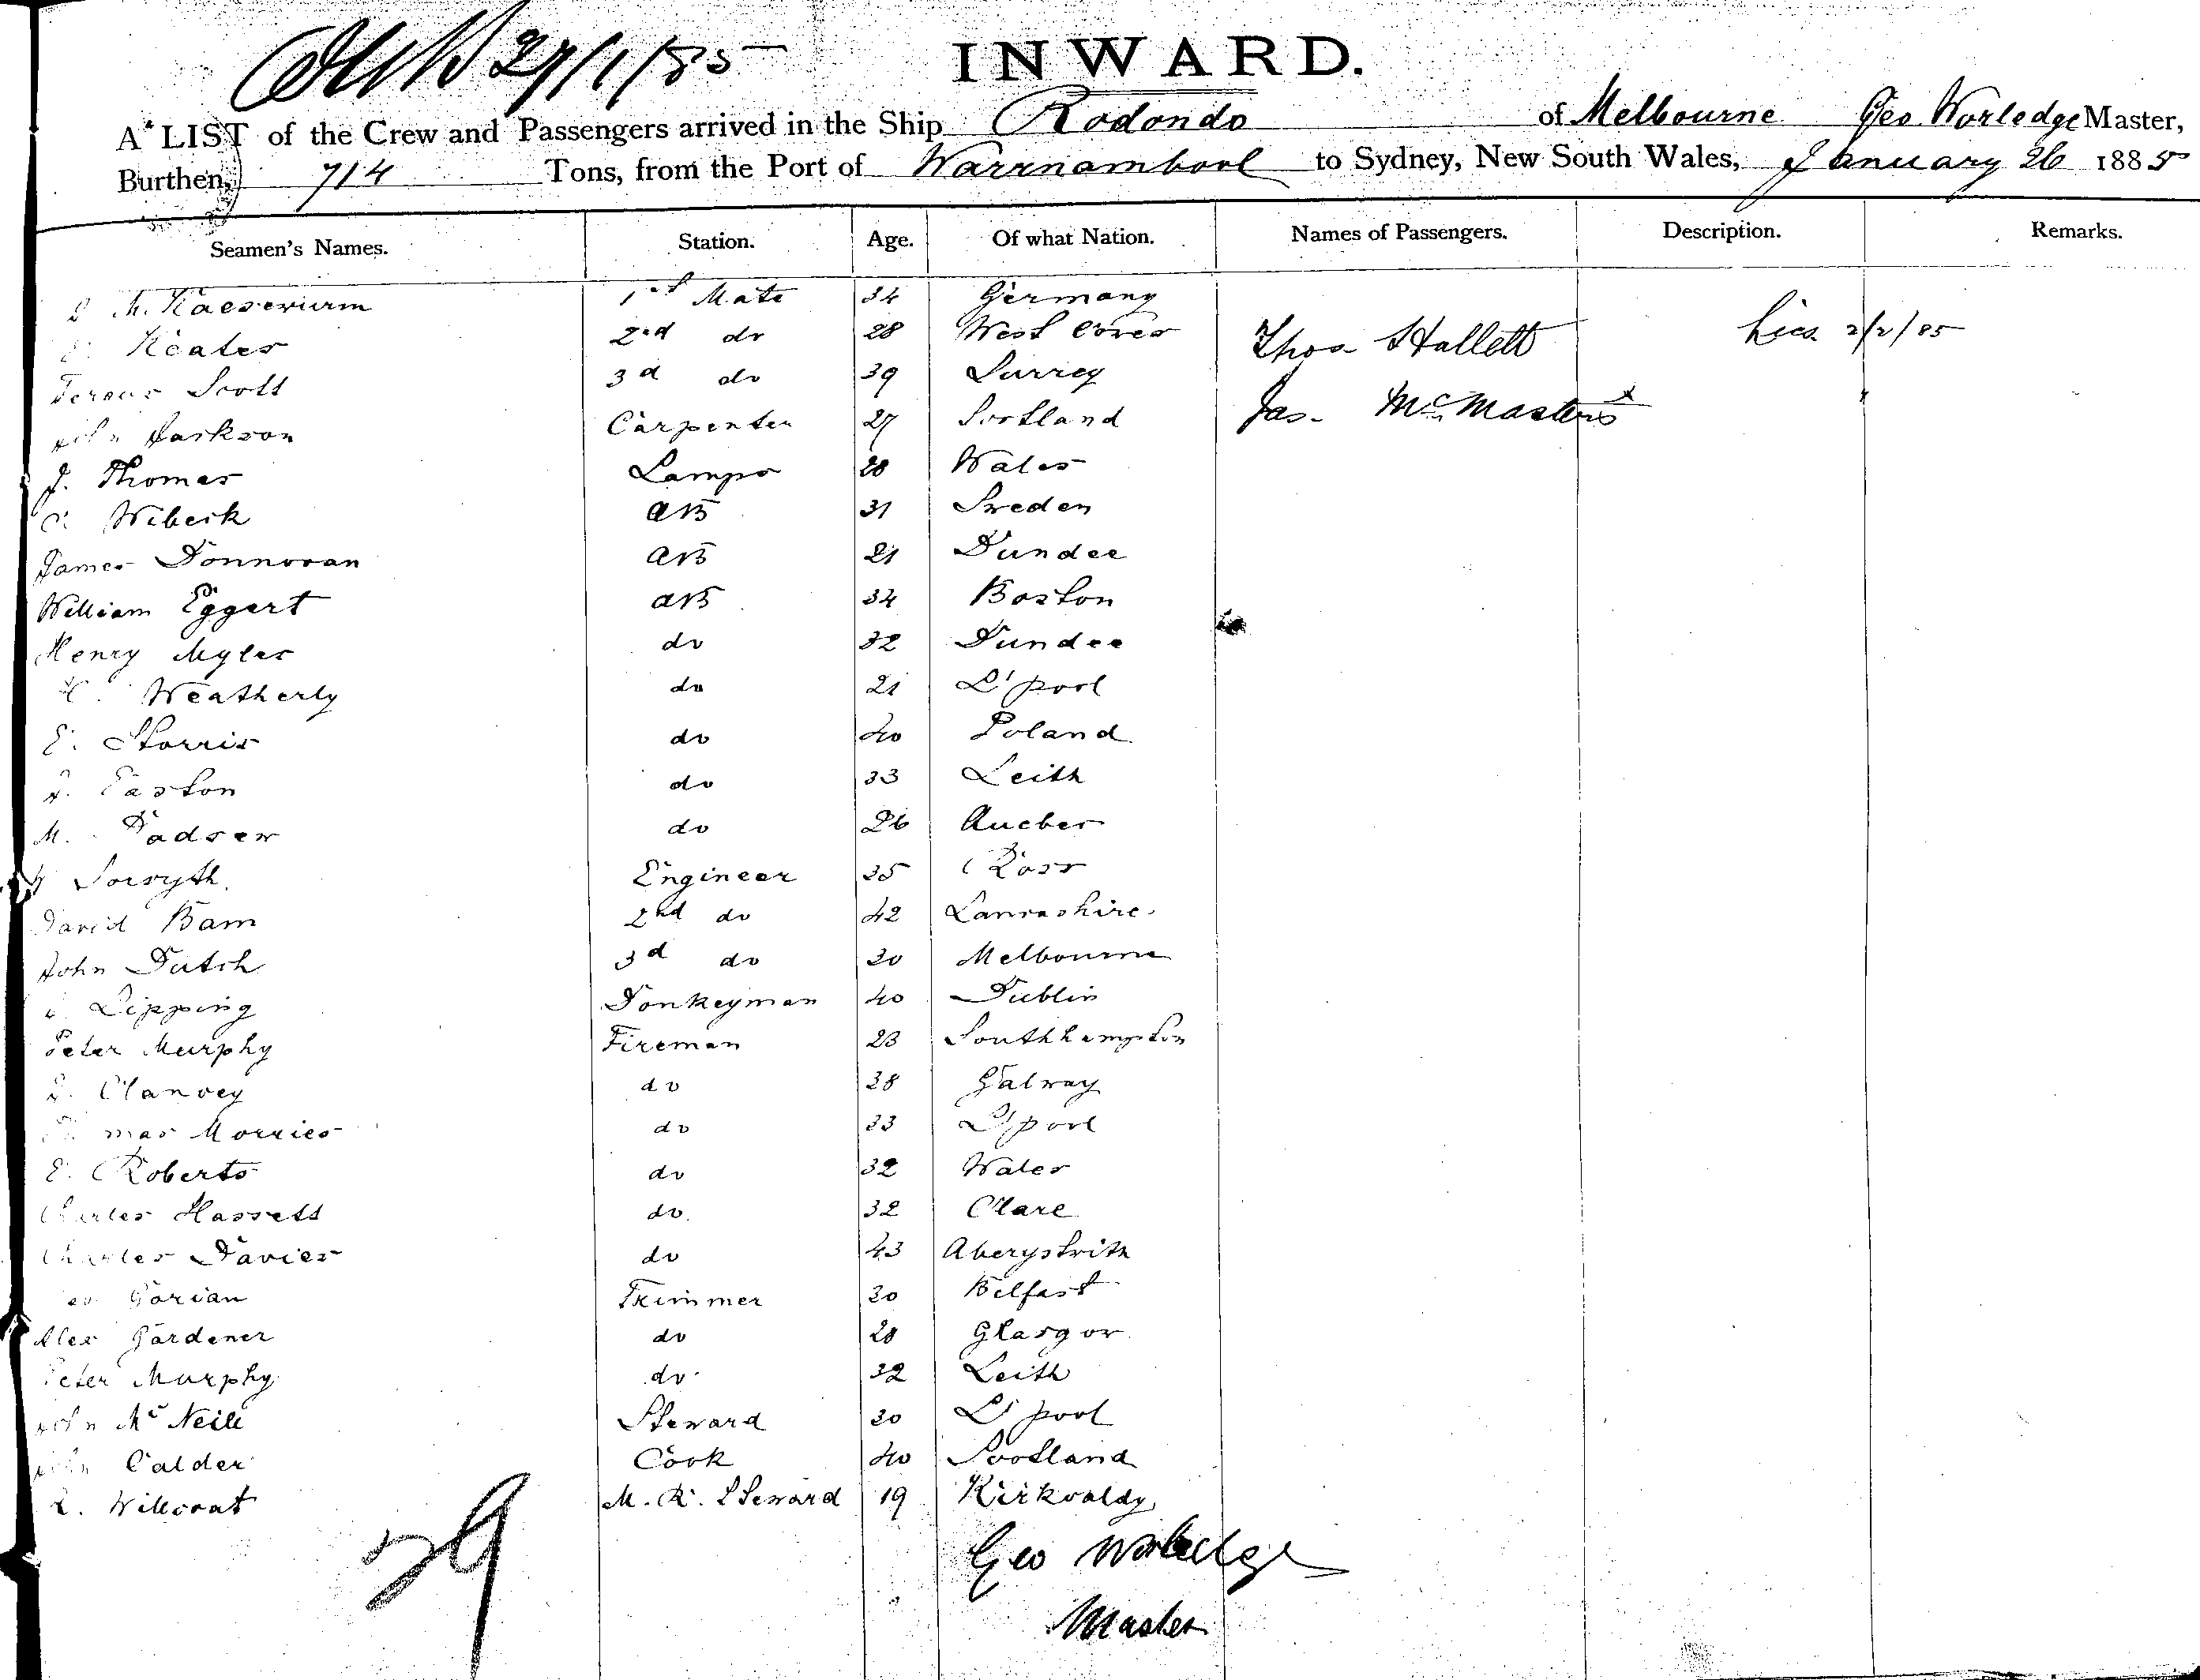 27/1/85
INWARD.
A LIST of the Crew and Passengers arrived in the Ship Rodondo of Melbourne Geo Worledge Master,
Burthen, 714 Tons, from the Port of Warrnambool to Sydney, New South Wales, January 26 1885
Seamen's Names. Station. Age. Of what Nation. Names of Passengers. Description. Remarks.
M. Kaeserwurm 1st Mate 34 Germany
Keates 2nd do 28 West Cowes Thos Hallett 2/2/85
Scott 3d do 39 Surrey
John Jackson Carpenter 27 Scotland Jas. McMasters "
J. Thomas Lamps 28 Wales
Wibeck AB 31 Sweden
James Donnovan AB 21 Dundee
William Eggert AB 34 Boston
Henry Myles do 32 Dundee
Weatherly do 21 L'pool
E. Storris do 40 Poland
Easton do 33 Leith
M. do 26
Forsyth Engineer 35 Ross
David Bam 2nd do 42 Lancashire
John Dutch 3d do 30 Melbourne
Lipping Donkeyman 40 Dublin
Peter Murphy Fireman 23 Southhampton
Clancey do 38 Galway
Morries do 33 L'pool
E. Roberts do 32 Wales
Charles Hassett do 32 Clare
Charles Davies do 43 Aberystwith
Gorian Trimmer 30 Belfast
Alex Gardener do 28 Glasgow
Peter Murphy do 32 Leith
John McNeill Steward 30 L'pool
John Calder Cook 40 Scotland
Willcoat M. R. Steward 19 Kirkcaldy
29
Geo Worledge
Master